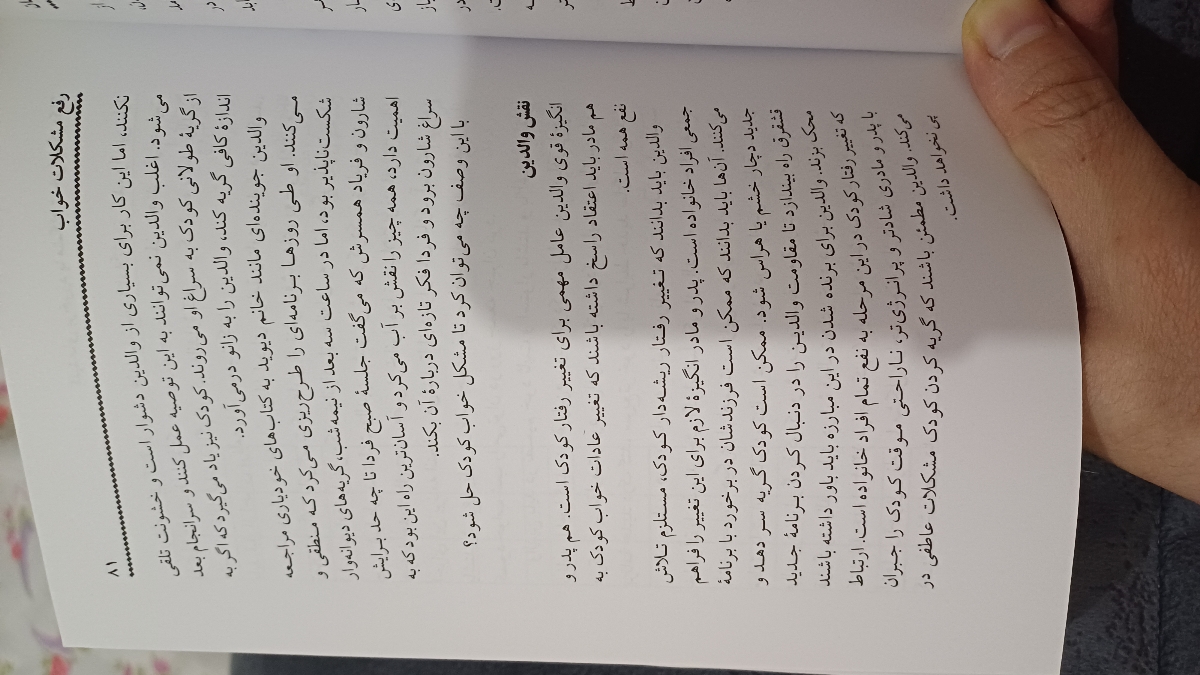 رفع مشکلات خواب ۸۱
نکنند، اما این کار برای بسیاری از والدین دشوار است و خشونت تلقی
می‌شود. اغلب والدین نمی‌توانند به این توصیه عمل کنند و سرانجام بعد
از گریهٔ طولانی کودک به سراغ او می‌روند. کودک نیز یاد می‌گیرد که اگر به
اندازهٔ کافی گریه کند، والدین را به زانو درمی‌آورد.
والدین جوینده‌ای مانند خانم دیوید به کتاب‌های خودیاری مراجعه
می‌کنند. او طی روزها برنامه‌ای را طرح‌ریزی می‌کرد که منطقی و
شکست‌ناپذیر بود، اما در ساعت سه بعد از نیمه‌شب، گریه‌های دیوانه‌وار
شارون و فریاد همسرش که می‌گفت جلسهٔ صبح فردا تا چه حد برایش
اهمیت دارد، همه چیز را نقش بر آب می‌کرد و آسان‌ترین راه این بود که به
سراغ شارون برود و فردا فکر تازه‌ای دربارهٔ آن بکند.
با این وصف چه می‌توان کرد تا مشکل خواب کودک حل شود؟
نقش والدین
انگیزهٔ قوی والدین عامل مهمی برای تغییر رفتار کودک است. هم پدر و
هم مادر باید اعتقاد راسخ داشته باشند که تغییر عادات خواب کودک به
نفع همه است.
والدین باید بدانند که تغییر رفتار ریشه‌دار کودک، مستلزم تلاش
جمعی افراد خانواده است. پدر و مادر انگیزهٔ لازم برای این تغییر را فراهم
می‌کنند. آن‌ها باید بدانند که ممکن است فرزندشان در برخورد با برنامهٔ
جدید دچار خشم یا هراس شود. ممکن است کودک گریه سر دهد و
قشقرق راه بیندازد تا مقاومت والدین را در دنبال کردن برنامهٔ جدید
محک بزند. والدین برای برنده شدن در این مبارزه باید باور داشته باشند
که تغییر رفتار کودک در این مرحله به نفع تمام افراد خانواده است. ارتباط
با پدر و مادری شادتر و پرانرژی‌تر، ناراحتی موقت کودک را جبران
می‌کند. والدین مطمئن باشند که گریه کردن کودک مشکلات عاطفی در
پی نخواهد داشت.